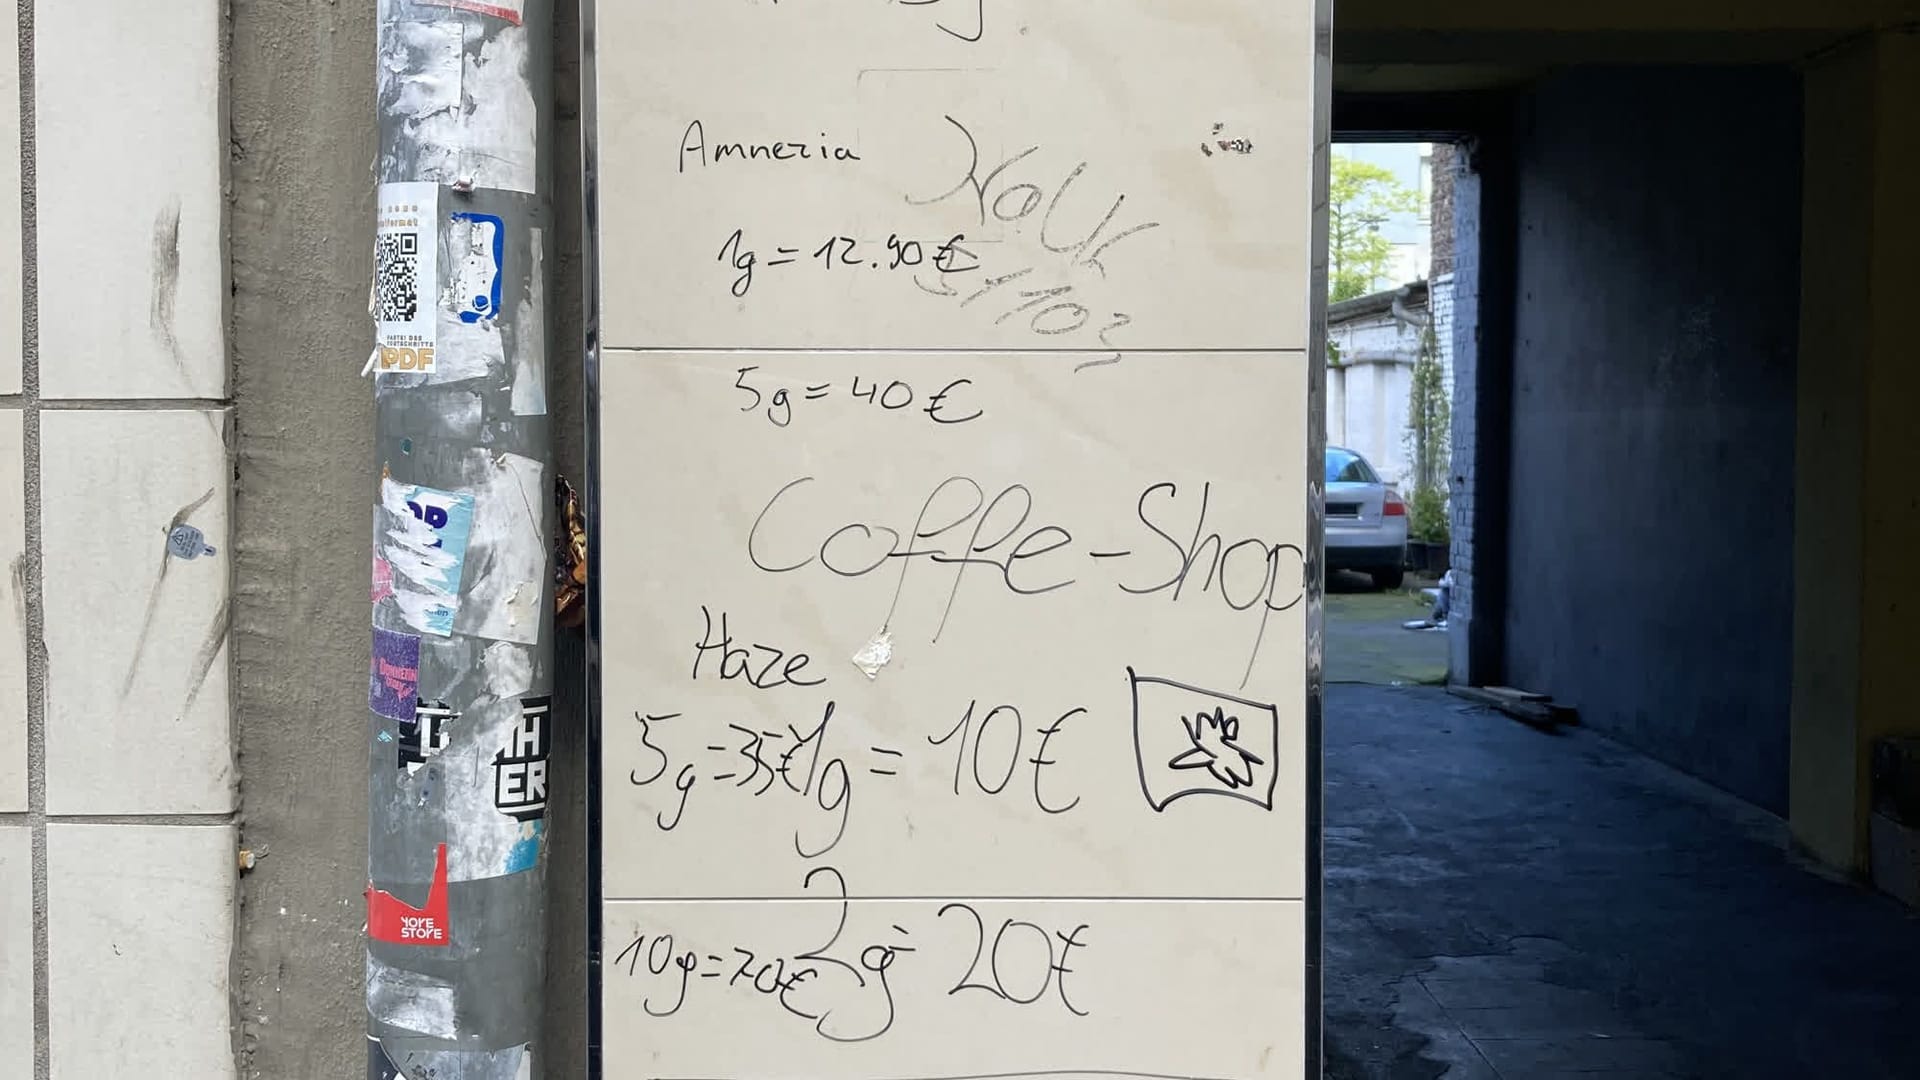 Amnezia
1g = 12.90 €
5g = 40 €
Coffe-Shop
Haze
5g = 35€ 1g = 10€
10g = 70€ 2g = 20€
PARTEI DES
FORTSCHRITTS
PDF
YORE
STORE